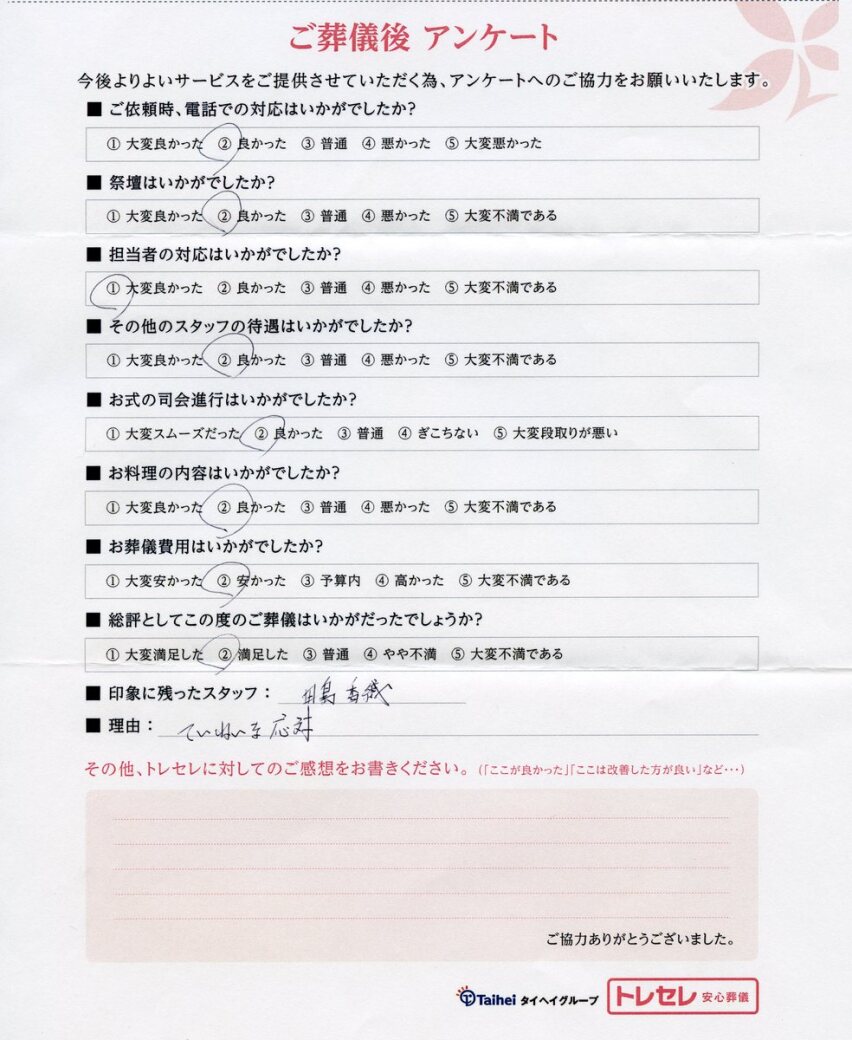 ご葬儀後 アンケート
今後よりよいサービスをご提供させていただく為、アンケートへのご協力をお願いいたします。
■ ご依頼時、電話での対応はいかがでしたか？
① 大変良かった ② 良かった ③ 普通 ④ 悪かった ⑤ 大変悪かった
■ 祭壇はいかがでしたか？
① 大変良かった ② 良かった ③ 普通 ④ 悪かった ⑤ 大変不満である
■ 担当者の対応はいかがでしたか？
① 大変良かった ② 良かった ③ 普通 ④ 悪かった ⑤ 大変不満である
■ その他のスタッフの待遇はいかがでしたか？
① 大変良かった ② 良かった ③ 普通 ④ 悪かった ⑤ 大変不満である
■ お式の司会進行はいかがでしたか？
① 大変スムーズだった ② 良かった ③ 普通 ④ ぎこちない ⑤ 大変段取りが悪い
■ お料理の内容はいかがでしたか？
① 大変良かった ② 良かった ③ 普通 ④ 悪かった ⑤ 大変不満である
■ お葬儀費用はいかがでしたか？
① 大変安かった ② 安かった ③ 予算内 ④ 高かった ⑤ 大変不満である
■ 総評としてこの度のご葬儀はいかがだったでしょうか？
① 大変満足した ② 満足した ③ 普通 ④ やや不満 ⑤ 大変不満である
■ 印象に残ったスタッフ： 田島 香織
■ 理由： ていねいな応対
その他、トレセレに対してのご感想をお書きください。（「ここが良かった」「ここは改善した方が良い」など・・・）
ご協力ありがとうございました。
Taihei タイヘイグループ トレセレ 安心葬儀